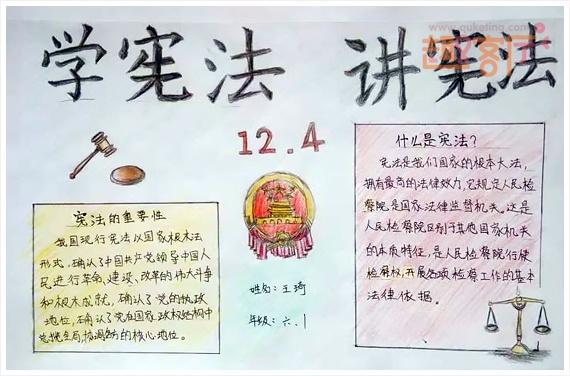 www.quketing.com
趣客网
学宪法 讲宪法
12.4
什么是宪法?
宪法是我们国家的根本大法,
拥有最高的法律效力,它规定人民检
察院是国家法律监督机关。这是
人民检察院区别于其他国家机关
的本质特征,是人民检察院行使
检察权,开展各项检察工作的基本
法律依据。
宪法的重要性
我国现行宪法以国家根本法
形式,确认了中国共产党领导中国人
民进行革命、建设、改革的伟大斗争
和根本成就,确认了党的执政
地位,确认了党在国家政权结构中
总揽全局,协调各方的核心地位。
姓名:王琦
年级:六.1